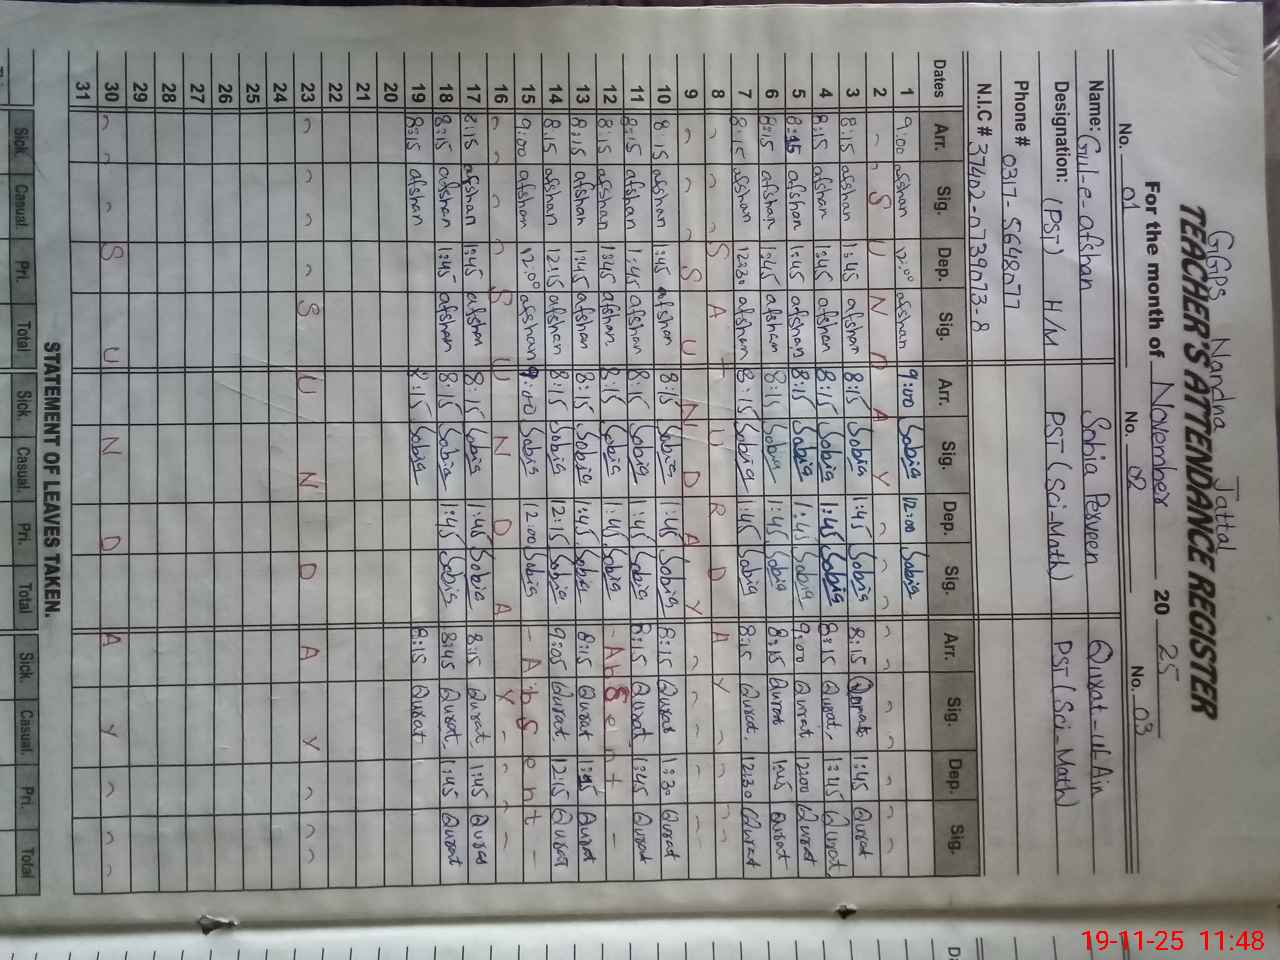 GGPS Nandna Jattal
TEACHER'S ATTENDANCE REGISTER
For the month of November 2025
No. 01 No. 02 No. 03
Name: Gul-e-afshan Sobia Perveen Qurat-ul-Ain
Designation: (PST) H/M PST (Sci-Math) PST (Sci-Math)
Phone # 0317-5648077
N.I.C # 37402-0739073-8
Dates Arr. Sig. Dep. Sig. Arr. Sig. Dep. Sig. Arr. Sig. Dep. Sig.
1 9:00 afshan 12:00 afshan 9:00 Sobia 12:00 Sobia
2 SUNDAY
3 8:15 afshan 1:45 afshan 8:15 Sobia 1:45 Sobia 8:15 Qurat 1:45 Qurat
4 8:15 afshan 1:45 afshan 8:15 Sobia 1:45 Sobia 8:15 Qurat 1:45 Qurat
5 8:15 afshan 1:45 afshan 8:15 Sobia 1:45 Sobia 9:00 Qurat 12:00 Qurat
6 8:15 afshan 1:45 afshan 8:15 Sobia 1:45 Sobia 8:15 Qurat 1:45 Qurat
7 8:15 afshan 12:30 afshan 8:15 Sobia 1:45 Sobia 8:15 Qurat 12:30 Qurat
8 SATURDAY
9 SUNDAY
10 8:15 afshan 1:45 afshan 8:15 Sobia 1:45 Sobia 8:15 Qurat 1:30 Qurat
11 8:15 afshan 1:45 afshan 8:15 Sobia 1:45 Sobia 8:15 Qurat 1:45 Qurat
12 8:15 afshan 1:45 afshan 8:15 Sobia 1:45 Sobia - Absent -
13 8:15 afshan 1:45 afshan 8:15 Sobia 1:45 Sobia 8:15 Qurat 1:45 Qurat
14 8:15 afshan 12:15 afshan 8:15 Sobia 12:15 Sobia 9:05 Qurat 12:15 Qurat
15 9:00 afshan 12:00 afshan 9:00 Sobia 12:00 Sobia - Absent -
16 SUNDAY
17 8:15 afshan 1:45 afshan 8:15 Sobia 1:45 Sobia 8:15 Qurat 1:45 Qurat
18 8:15 afshan 1:45 afshan 8:15 Sobia 1:45 Sobia 8:45 Qurat 1:45 Qurat
19 8:15 afshan 8:15 Sobia 8:15 Qurat
20
21
22
23 SUNDAY
24
25
26
27
28
29
30 SUNDAY
31
STATEMENT OF LEAVES TAKEN.
Sick Casual. Pri. Total Sick. Casual. Pri. Total Sick. Casual. Pri. Total
19-11-25 11:48